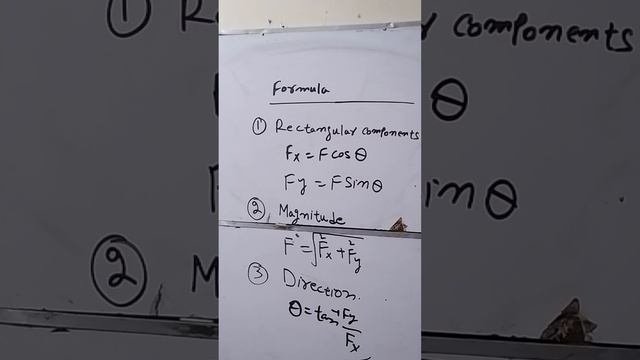 Formula
① Rectangular components
Fx = F cos θ
Fy = F Sin θ
② Magnitude
F² = √Fx² + Fy²
③ Direction.
θ = tan⁻¹ Fy/Fx